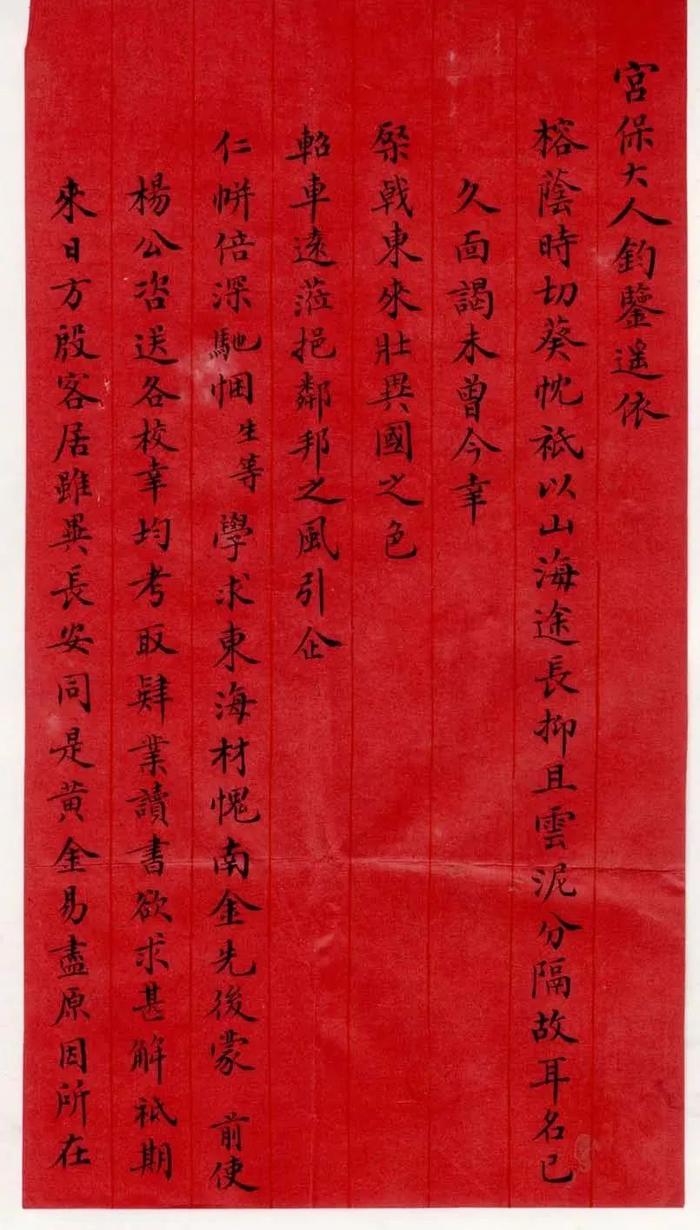 宮保大人鈞鑒遥依
榕蔭時切葵忱祇以山海途長抑且雲泥分隔故耳名已
久面謁未曾今幸
棨戟東來壯異國之色
軺車遠蒞挹鄰邦之風引企
仁帡倍深馳悃生等學求東海材愧南金先後蒙 前使
楊公咨送各校幸均考取肄業讀書欲求甚解祇期
來日方殷客居雖異長安同是黃金易盡原因所在